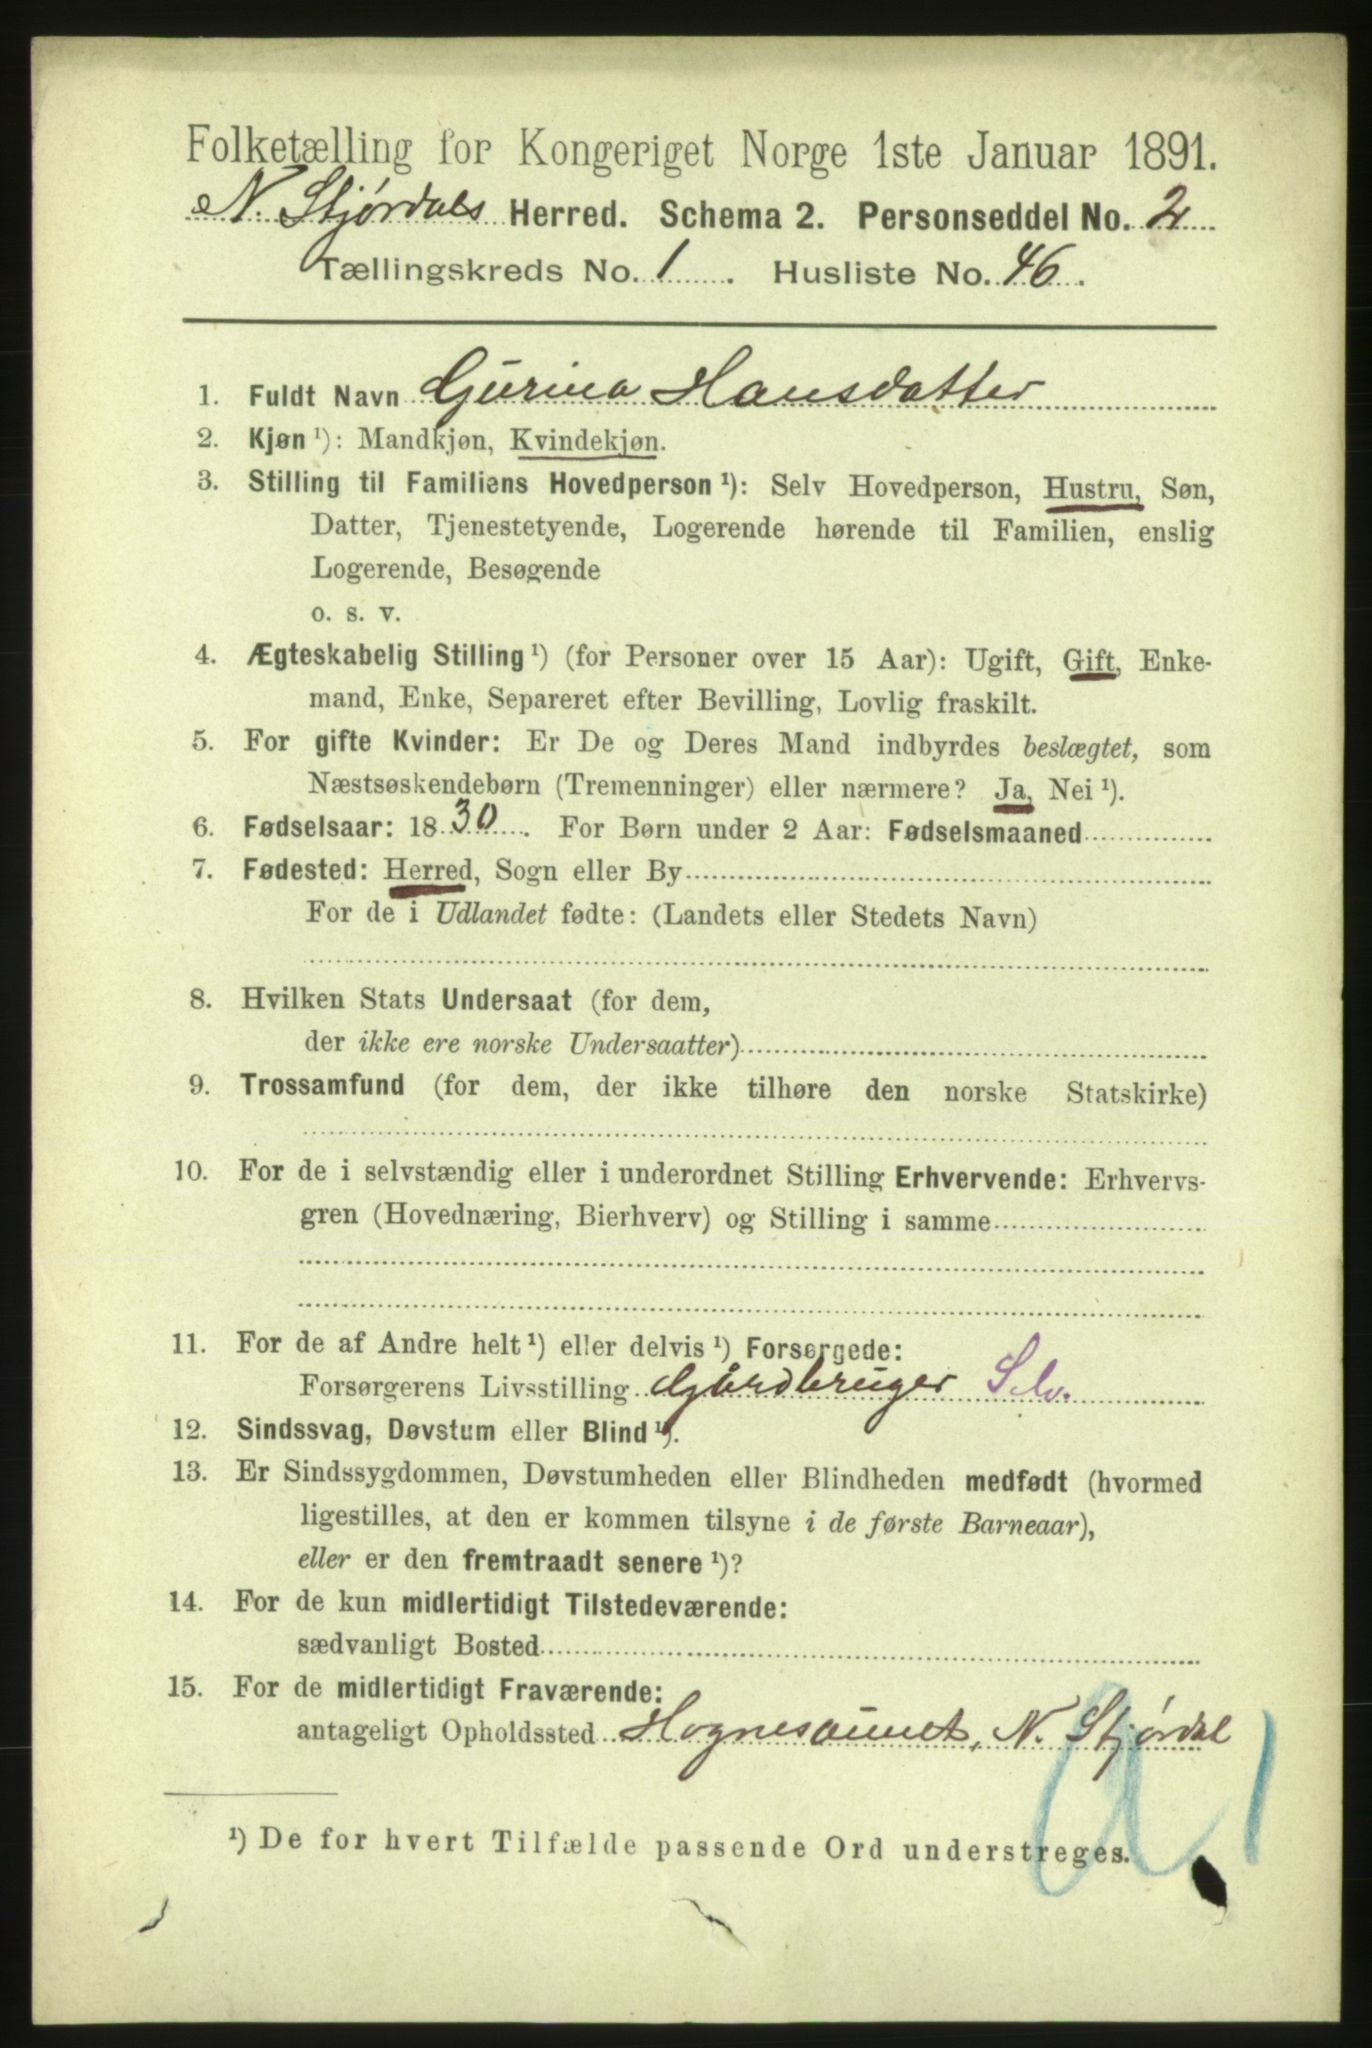 Folketælling for Kongeriget Norge 1ste Januar 1891.
N. Stjørdals Herred. Schema 2. Personseddel No. 2
Tællingskreds No. 1. Husliste No. 46.
1. Fuldt Navn Gurina Hansdatter
2. Kjøn ¹): Mandkjøn, Kvindekjøn.
3. Stilling til Familiens Hovedperson ¹): Selv Hovedperson, Hustru, Søn,
Datter, Tjenestetyende, Logerende hørende til Familien, enslig
Logerende, Besøgende
o. s. v.
4. Ægteskabelig Stilling ¹) (for Personer over 15 Aar): Ugift, Gift, Enke-
mand, Enke, Separeret efter Bevilling, Lovlig fraskilt.
5. For gifte Kvinder: Er De og Deres Mand indbyrdes beslægtet, som
Næstsøskendebørn (Tremenninger) eller nærmere? Ja, Nei ¹).
6. Fødselsaar: 1830. For Børn under 2 Aar: Fødselsmaaned
7. Fødested: Herred, Sogn eller By
For de i Udlandet fødte: (Landets eller Stedets Navn)
8. Hvilken Stats Undersaat (for dem,
der ikke ere norske Undersaatter)
9. Trossamfund (for dem, der ikke tilhøre den norske Statskirke)
10. For de i selvstændig eller i underordnet Stilling Erhvervende: Erhvervs-
gren (Hovednæring, Bierhverv) og Stilling i samme
11. For de af Andre helt ¹) eller delvis ¹) Forsørgede:
Forsørgerens Livsstilling Gårdbruger Selv.
12. Sindssvag, Døvstum eller Blind ¹).
13. Er Sindssygdommen, Døvstumheden eller Blindheden medfødt (hvormed
ligestilles, at den er kommen tilsyne i de første Barneaar),
eller er den fremtraadt senere ¹)?
14. For de kun midlertidigt Tilstedeværende:
sædvanligt Bosted
15. For de midlertidigt Fraværende:
antageligt Opholdssted Hognesaunet, N. Stjørdal
¹) De for hvert Tilfælde passende Ord understreges.